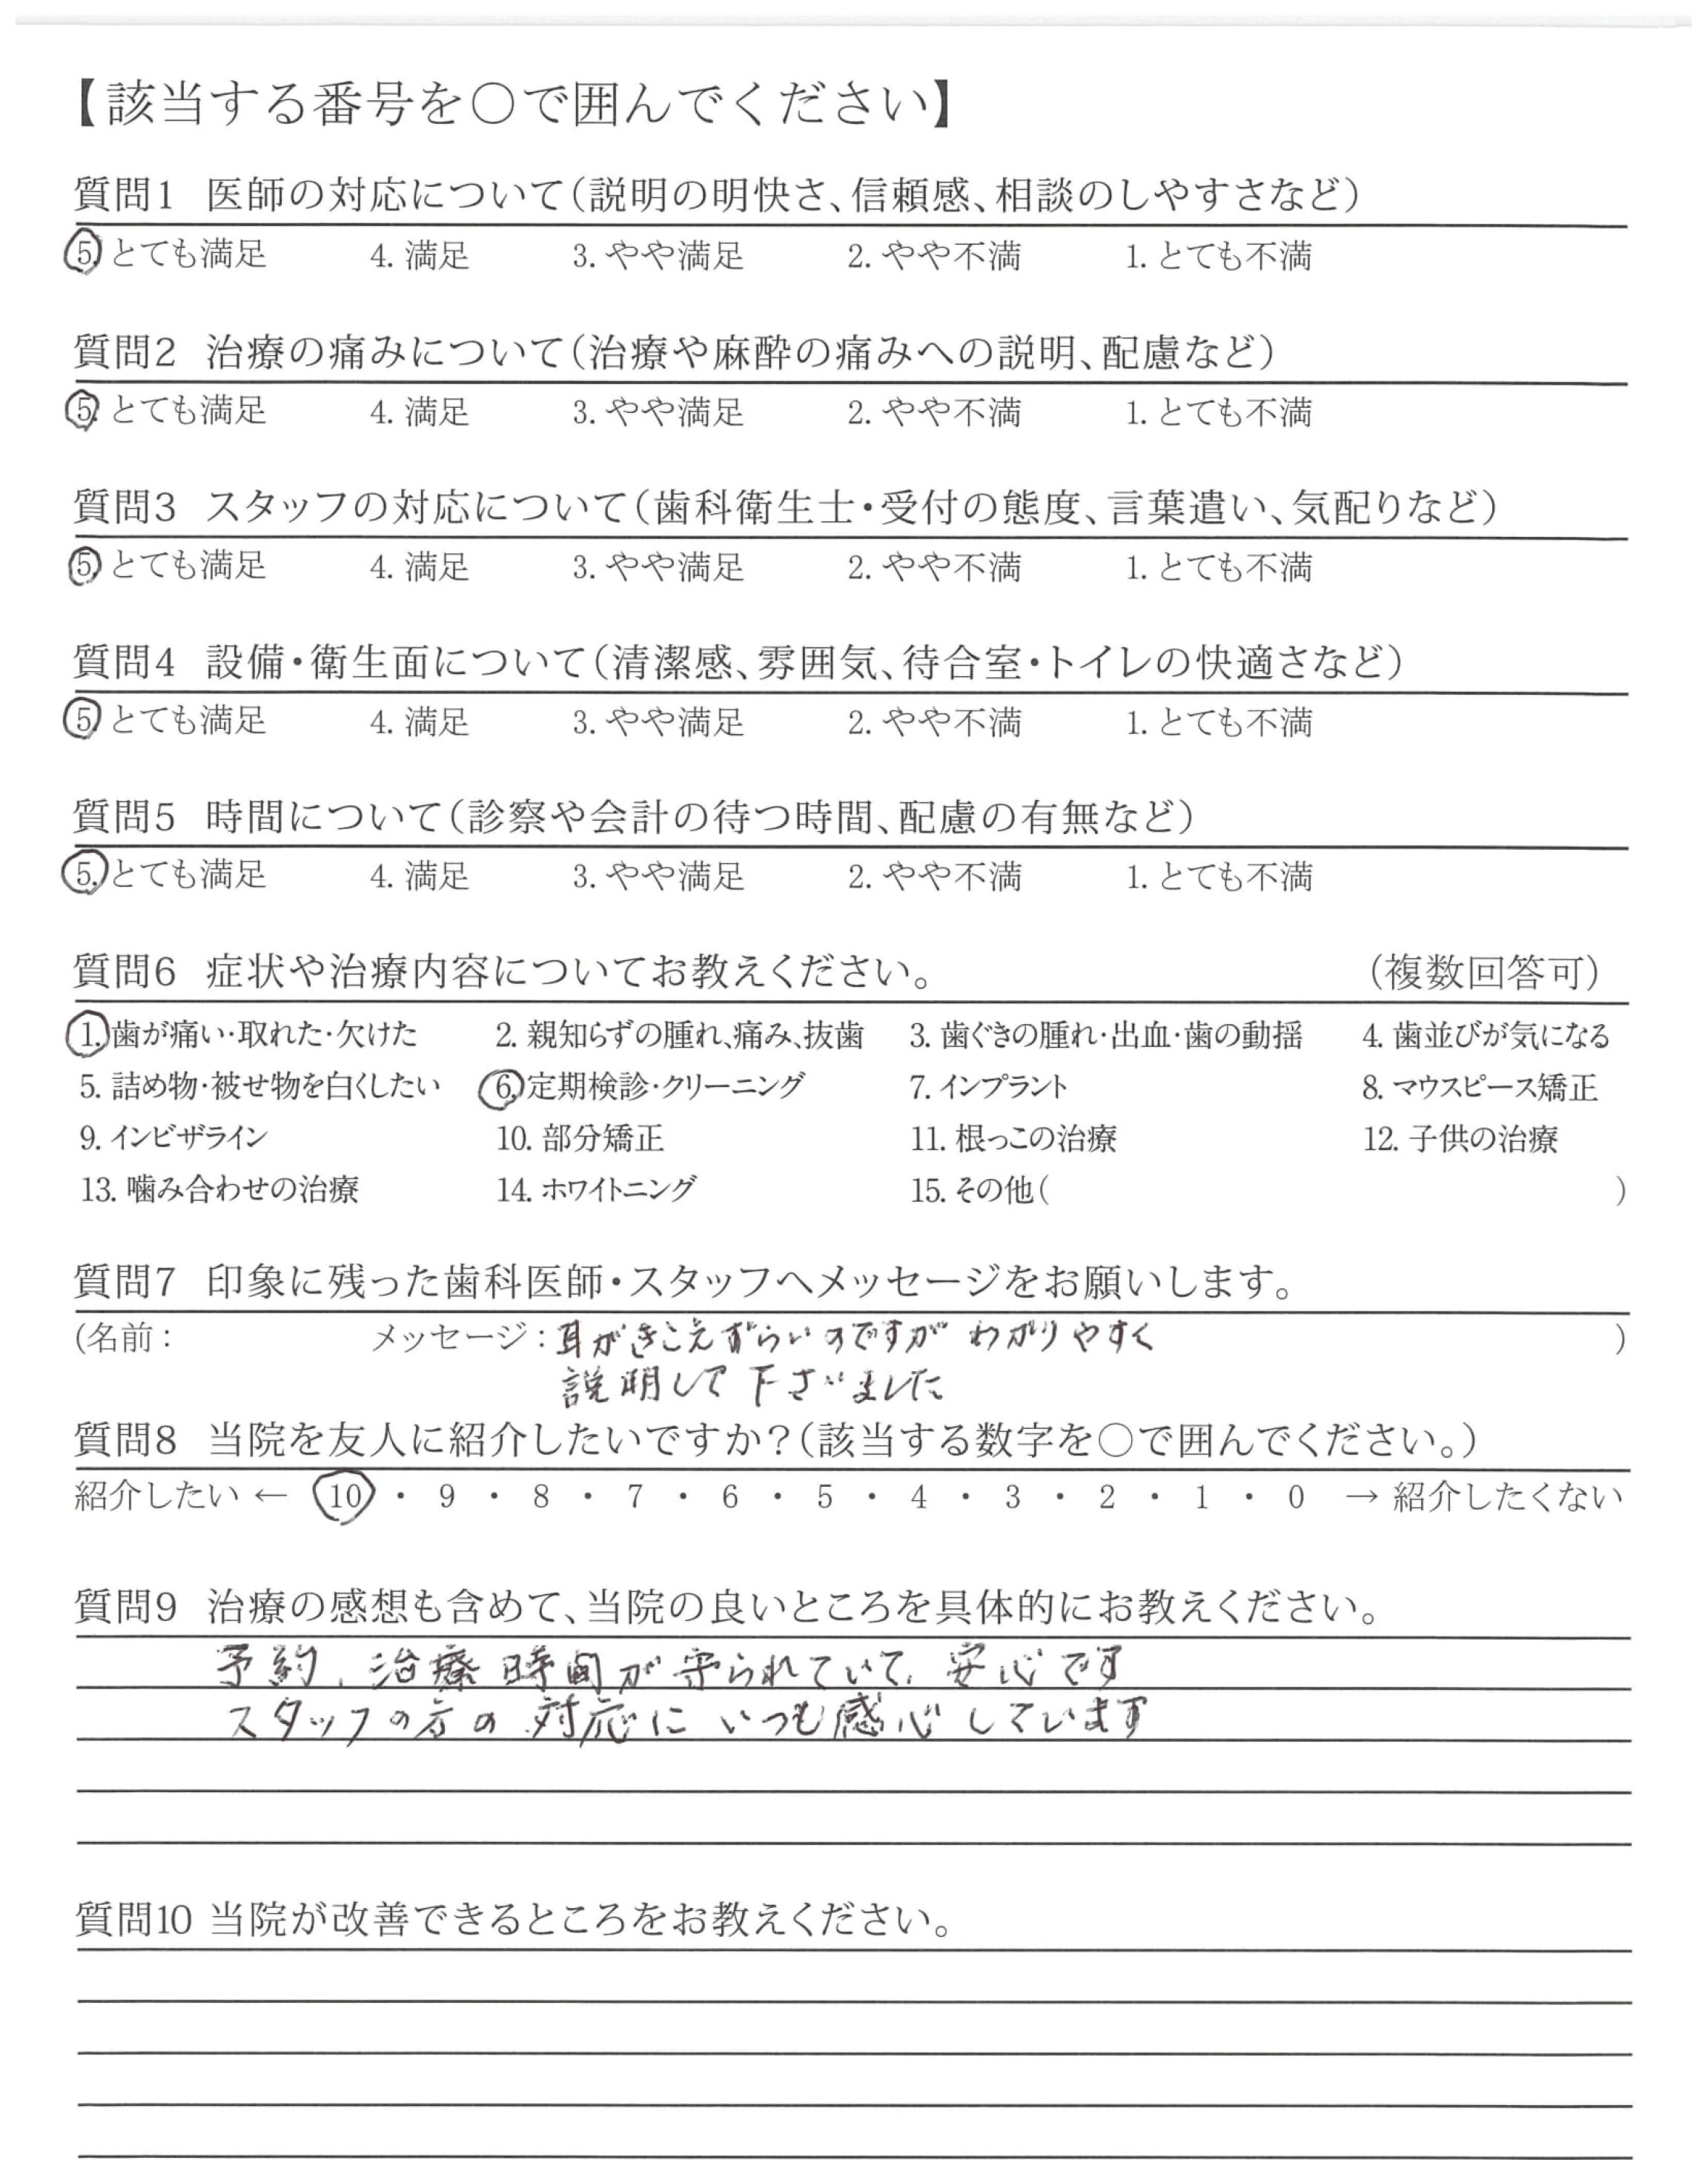 【該当する番号を○で囲んでください】
質問1 医師の対応について(説明の明快さ、信頼感、相談のしやすさなど)
5. とても満足 4. 満足 3. やや満足 2. やや不満 1. とても不満
質問2 治療の痛みについて(治療や麻酔の痛みへの説明、配慮など)
5. とても満足 4. 満足 3. やや満足 2. やや不満 1. とても不満
質問3 スタッフの対応について(歯科衛生士・受付の態度、言葉遣い、気配りなど)
5. とても満足 4. 満足 3. やや満足 2. やや不満 1. とても不満
質問4 設備・衛生面について(清潔感、雰囲気、待合室・トイレの快適さなど)
5. とても満足 4. 満足 3. やや満足 2. やや不満 1. とても不満
質問5 時間について(診察や会計の待つ時間、配慮の有無など)
5. とても満足 4. 満足 3. やや満足 2. やや不満 1. とても不満
質問6 症状や治療内容についてお教えください。 (複数回答可)
1. 歯が痛い・取れた・欠けた 2. 親知らずの腫れ、痛み、抜歯 3. 歯ぐきの腫れ・出血・歯の動揺 4. 歯並びが気になる
5. 詰め物・被せ物を白くしたい 6. 定期検診・クリーニング 7. インプラント 8. マウスピース矯正
9. インビザライン 10. 部分矯正 11. 根っこの治療 12. 子供の治療
13. 噛み合わせの治療 14. ホワイトニング 15. その他( )
質問7 印象に残った歯科医師・スタッフへメッセージをお願いします。
(名前: メッセージ:耳がきこえずらいのですが わかりやすく )
説明して下さいました
質問8 当院を友人に紹介したいですか?(該当する数字を○で囲んでください。)
紹介したい ← 10 ・ 9 ・ 8 ・ 7 ・ 6 ・ 5 ・ 4 ・ 3 ・ 2 ・ 1 ・ 0 → 紹介したくない
質問9 治療の感想も含めて、当院の良いところを具体的にお教えください。
予約、治療時間が守られていて、安心です
スタッフの方の対応に いつも感心しています
質問10 当院が改善できるところをお教えください。